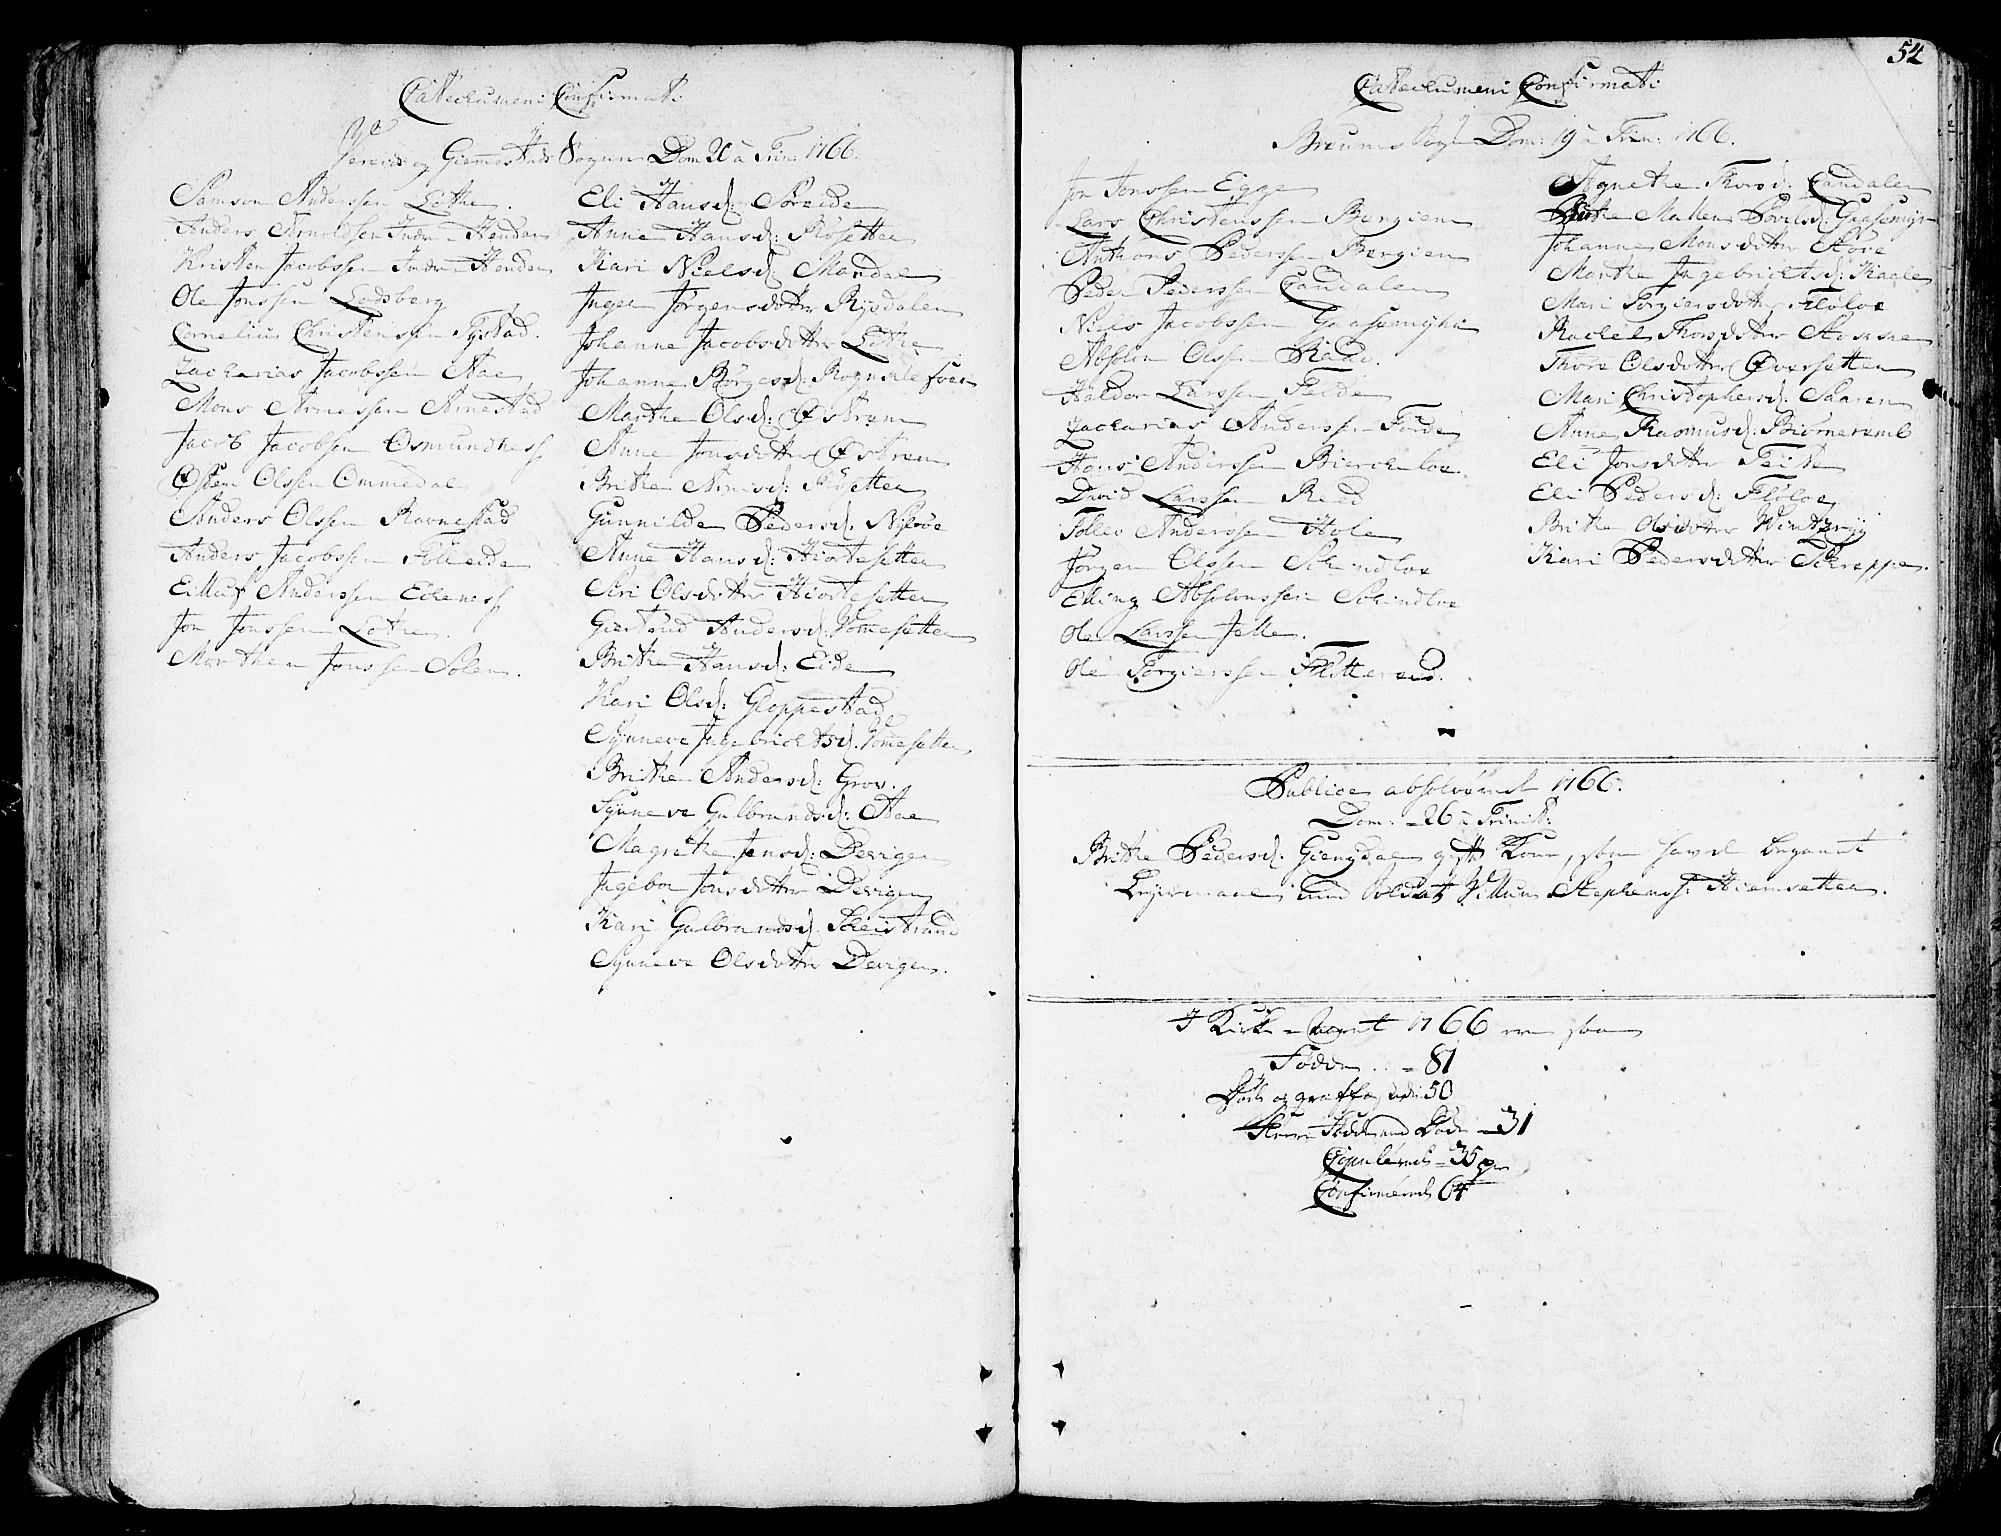 Catechumeni Confirmati
Vereids og Giemestads Sogner Dom 20 à Trin: 1766.
Samson Anderssen Lothe.
Anders Arnoldsen Indre-Henden
Kristen Jacobssen Indre-Henden
Ole Jonssen Lodsberg
Cornelius Christensen Tystad.
Zacharias Jacobssen Aae
Mons Arnessen Arnestad
Jacob Jacobsen Osmundness
Østen Olssen Ommedal
Anders Olssen Ravnestad
Anders Jacobssen Folleide
Anderssen Eideness
Jon Jonssen Lothe.
Morthen Jonssen Solem.
Eli Hansd: Søreide
Anne Hansd: Røsetter
Kari Nielsd: Mandal
Inger Jørgensdotter Rysdalen
Johanne Jacobsdotter Lothe
Johanne Børgesd:
Marthe Olsd: Østrem
Anne Jonsdotter Østrem
Brithe Arnesd: Fløetten
Gunnilde Pedersd: Nyløve
Anne Hansd: Hiortesetter
Siri Olsdotter Hiortesetter
Giertrud Andersd: Vomesetter
Brithe Hansd: Eide
Kari Olsd: Gloppestad
Synneve Ingebrichtsd. Vomesetter
Brithe Andersd: Grov.
Synneve Gulbrandsd: Aae
Magrethe Jensd: Devigen
Ingebor Jonsdotter Devigen
Kari Gulbrandsd: Scheistrand
Synneve Olsdotter Devigen.
54
Catechumeni Confirmati
Breums Sogn Dom: 19 à Trin: 1766.
Jon Jonssen Egge
Lars Christenssen Bergien
Anthons Pederssen Bergien
Peder Pederssen Sandalen
Niels Jacobssen Gaasemyhr
Absolon Olssen Raad.
Haldor Larssen Felde
Zacharias Anderssen Førde
Hans Anderssen Bierchloe.
David Larssen Reed
Tolles Anderssen Hole
Jørgen Olssen Schindloe
Elling Absolonssen Schindloe
Ole Larssen Felle.
Ole Torgierssen Flitteraid.
Agnethe Thorsd: Sandalen
Birthe Malene Povelsd: Gaasemyr
Johanne Monsdotter Støve
Marthe Ingebrichtsd: Kaale
Mari Torgiersdotter Fløloe
Rachel Thorsdotter
Thore Olsdotter Øvresetten
Mari Christophersd: Saaren
Anne Rasmusd: Biørneremb
Eli Jonsdotter Teite
Eli Pedersd: Fløloe
Brithe Olsdotter
Kari Pedersdotter Schreppen.
Publice absolveret 1766.
Dom: 26 à Trinit:
Brithe Pedersd: Giengdal gift Kone, som havde begaaet
Leyermaal med Soldat Villum Stephenss: Hiemsetter.
I Kirke-Aaret 1766 ere som
Fødde - 81
Døde og 50
Fleere Fødde end Døde - 31
Copulerede - 35 par
Confirmerede 64